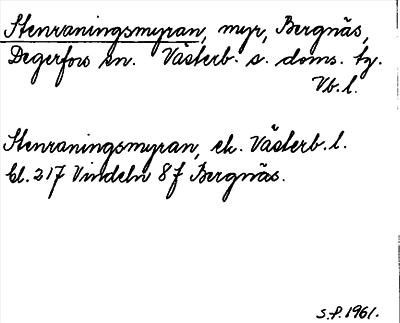 Stenraningsmyran, myr, Bergnäs,
Degerfors sn. Västerb. s. doms. tg.
Vb. l.
Stenraningsmyran, ek. Västerb. l.
bl. 217 Vindeln 8 f Bergnäs.
S.P. 1961.